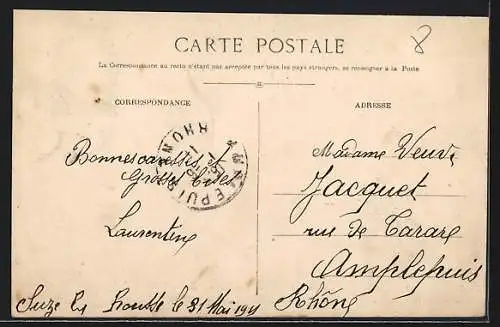 8
CARTE POSTALE
La Correspondance au recto n'étant pas acceptée par tous les pays étrangers, se renseigner à la Poste
CORRESPONDANCE
ADRESSE
Bonnes caresses et
Grosses
Laurentine
Suze la Rousse le 31 Mai 191
AMPLEPUIS RHONE
Madame Veuve
Jacquet
rue de Tarare
Amplepuis
Rhône